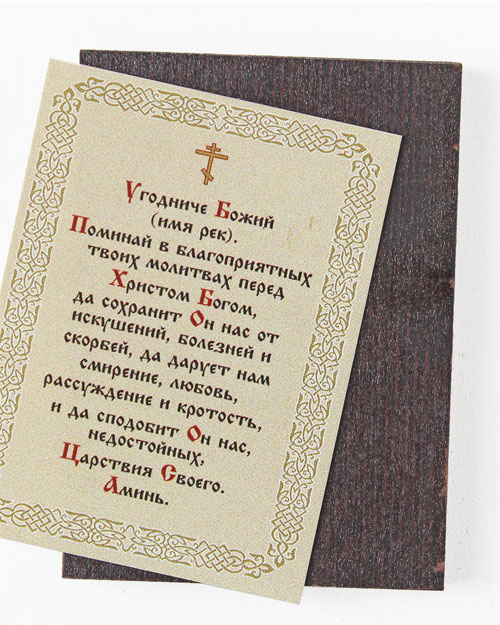 Угодниче Божий
(имя рек).
Поминай в благоприятных
твоих молитвах перед
Христом Богом,
да сохранит Он нас от
искушений, болезней и
скорбей, да дарует нам
смирение, любовь,
рассуждение и кротость,
и да сподобит Он нас,
недостойных,
Царствия Своего.
Аминь.